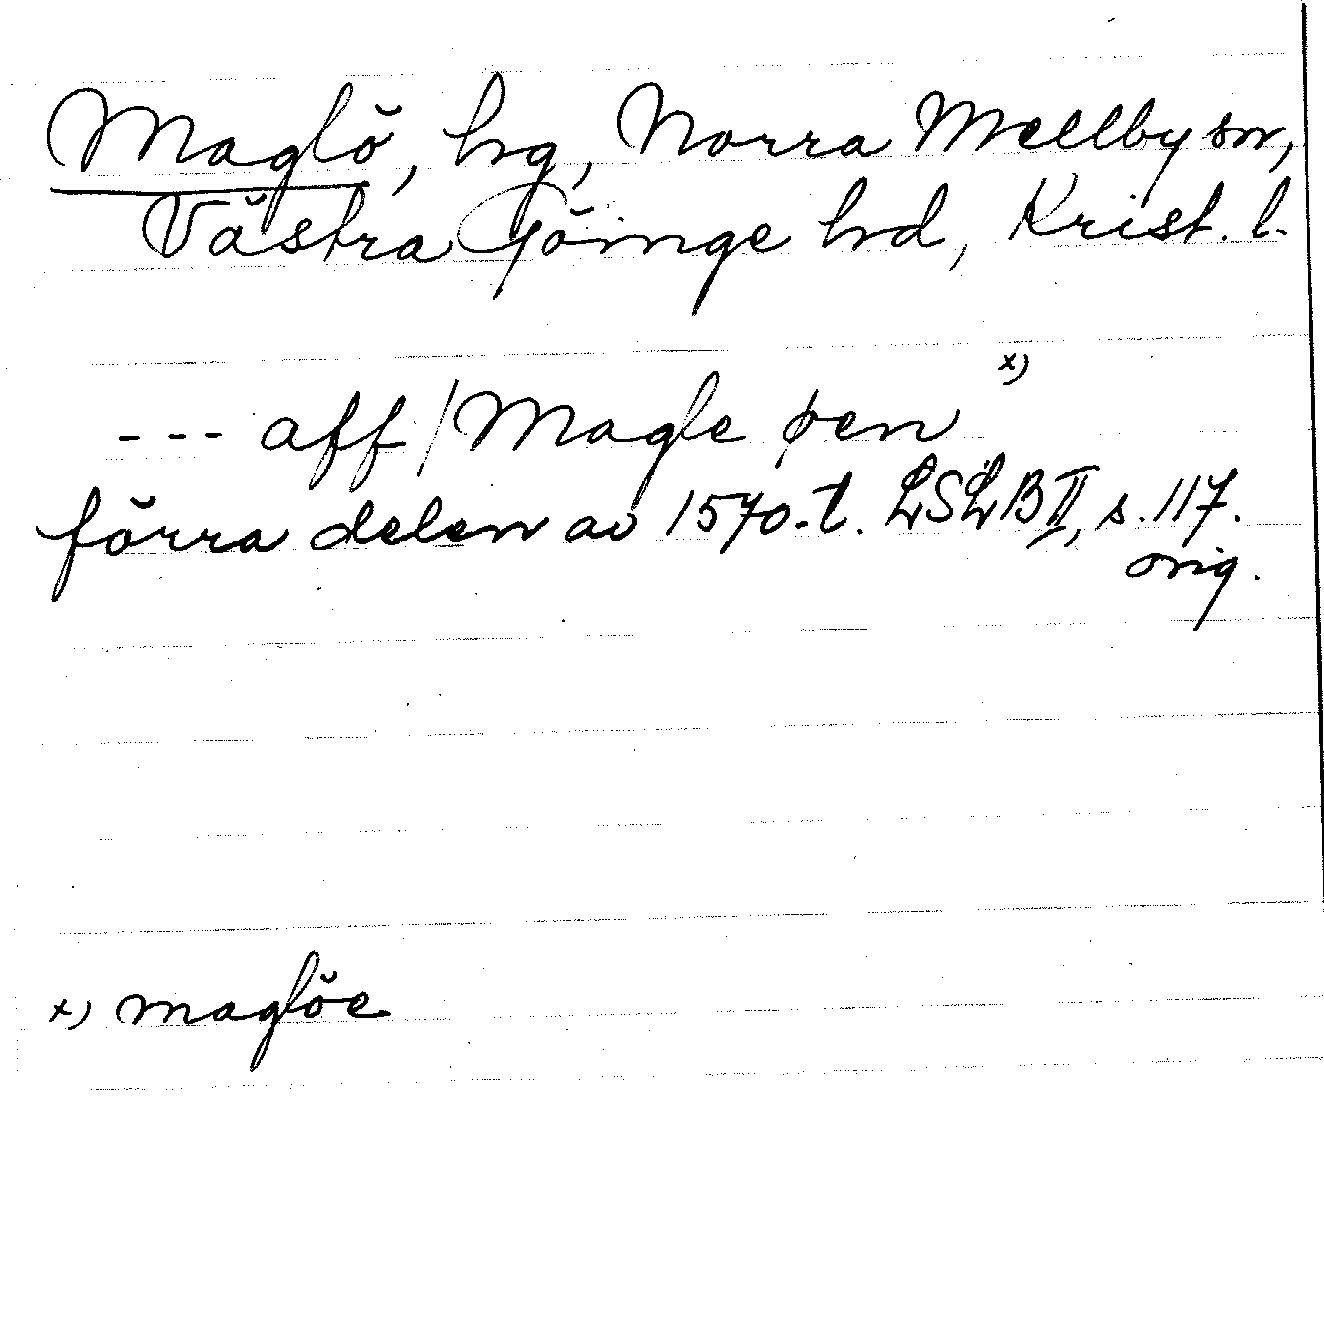 Maglö, hg, Norra Mellby sn,
Västra Göinge hd, Krist. l.
x)
--- aff / Magle øen
förra delen av 1570-t. LSLB II, s. 117.
orig.
x) maglöe